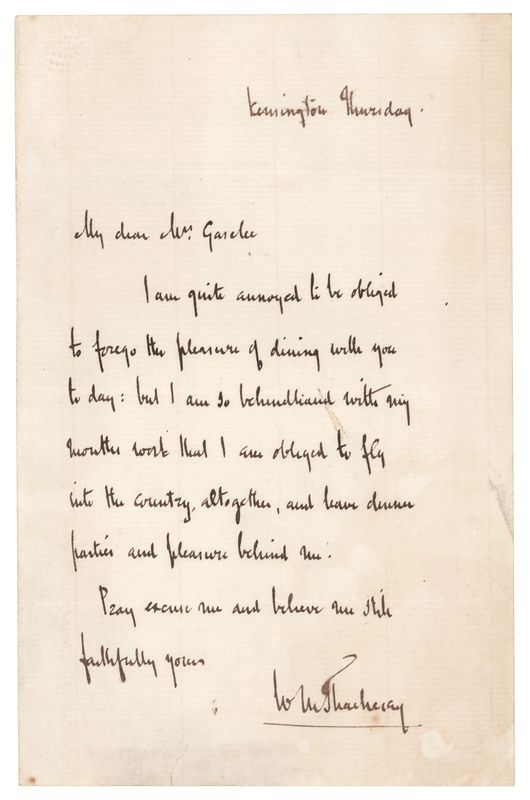 Kensington Thursday.
My dear Mrs. Gaselee
I am quite annoyed to be obliged
to forego the pleasure of dining with you
to day: but I am so behindhand with my
months work that I am obliged to fly
into the country, altogether, and leave dinner
parties and pleasure behind me.
Pray excuse me and believe me still
faithfully yours
W M Thackeray